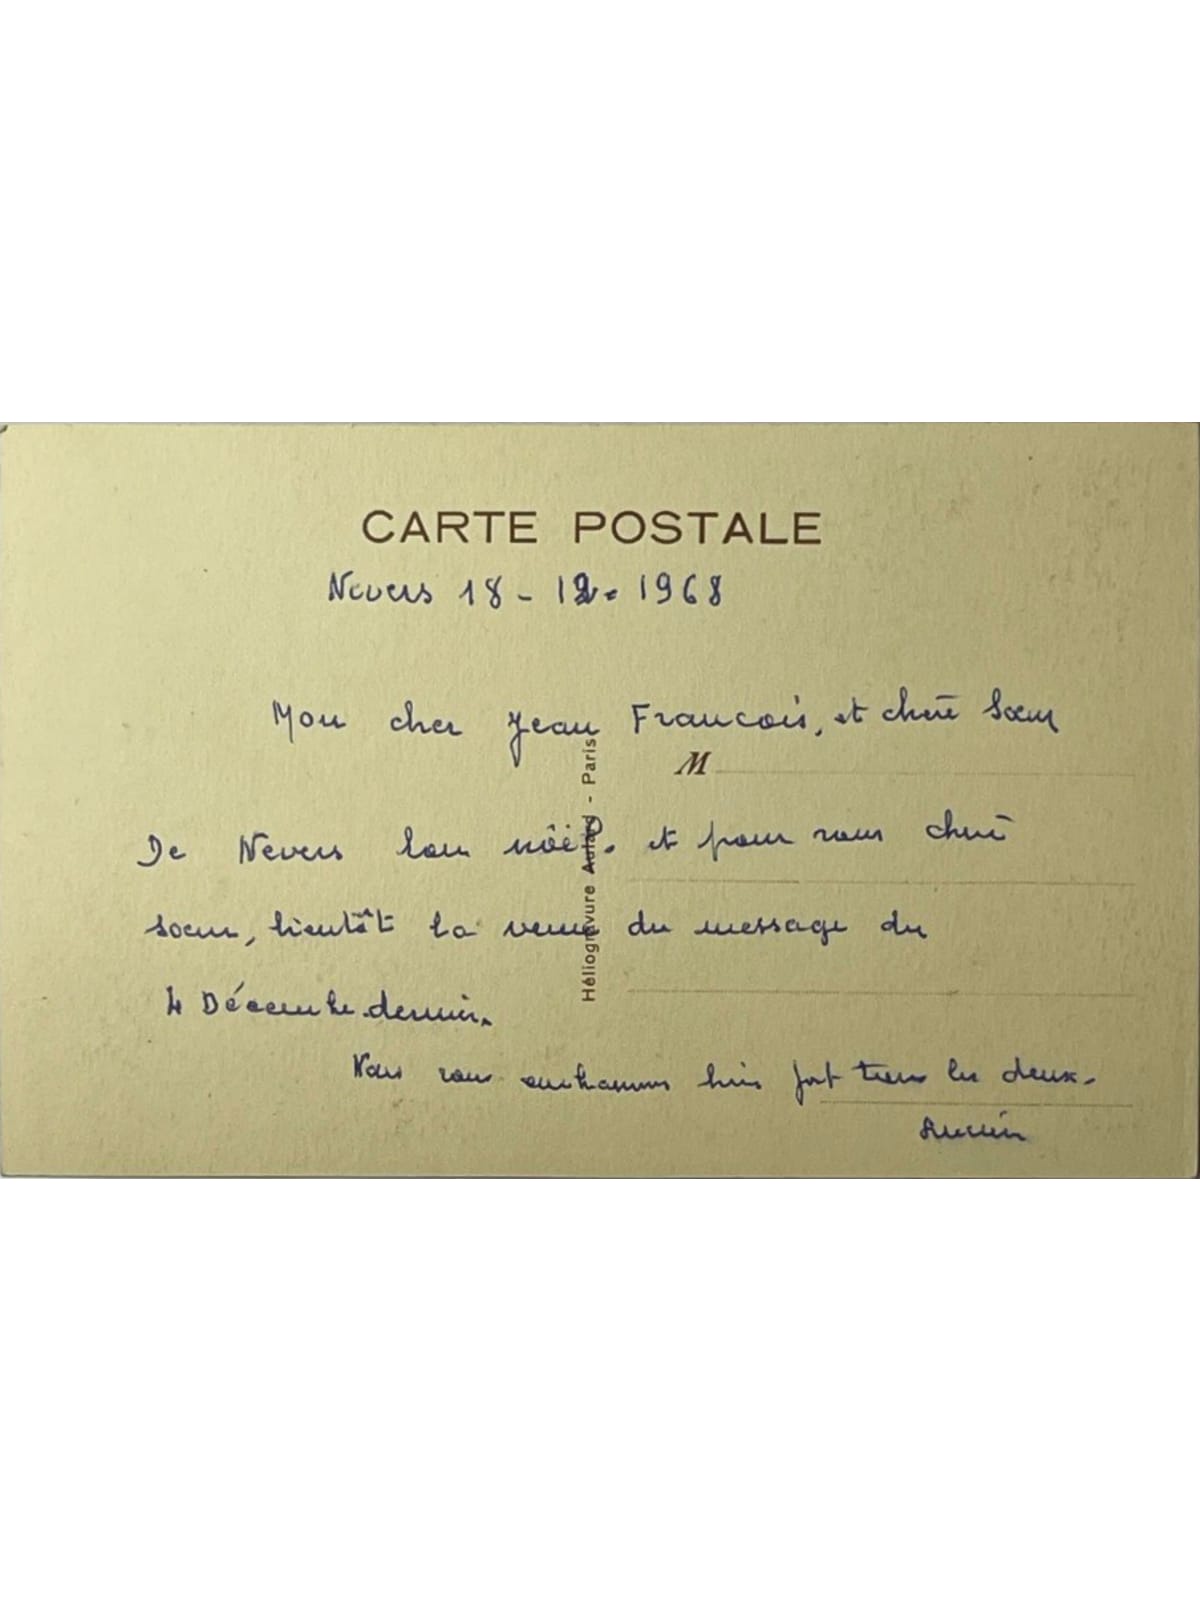 CARTE POSTALE
Nevers 18 - 12 - 1968
Mon cher Jean Francois, et chère Sœur
M
De Nevers bon nöël. et pour vous chère
sœur, bientôt la venue du message du
4 Décembre dernier.
Nous vous embrassons bien fort tous les deux.
Héliogravure Aulard - Paris